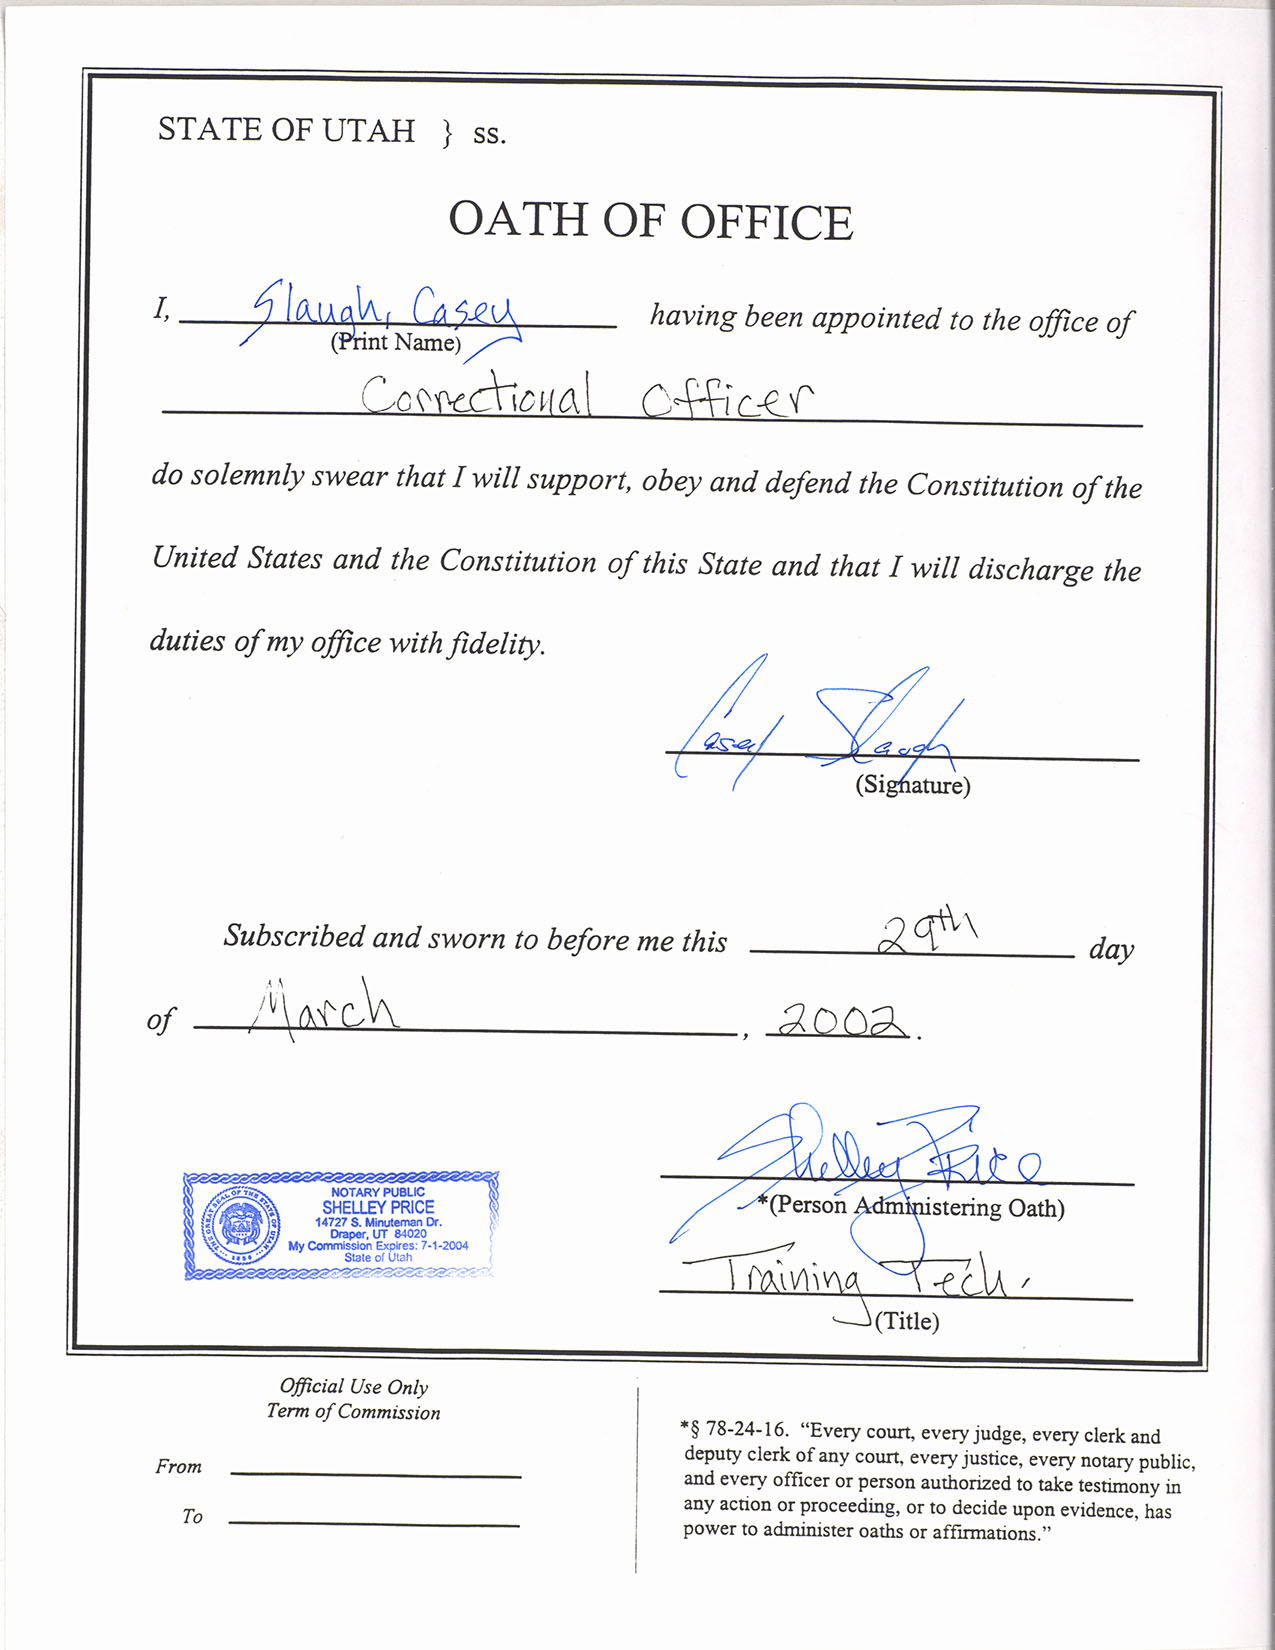 STATE OF UTAH } ss.
OATH OF OFFICE
I, Slaugh, Casey having been appointed to the office of
(Print Name)
Correctional Officer
do solemnly swear that I will support, obey and defend the Constitution of the
United States and the Constitution of this State and that I will discharge the
duties of my office with fidelity.
Casey Slaugh
(Signature)
Subscribed and sworn to before me this 29th day
of March, 2002.
Shelley Price
*(Person Administering Oath)
Training Tech.
(Title)
THE GREAT SEAL OF THE STATE OF UTAH
1896
NOTARY PUBLIC
SHELLEY PRICE
14727 S. Minuteman Dr.
Draper, UT 84020
My Commission Expires: 7-1-2004
State of Utah
Official Use Only
Term of Commission
From
To
*§ 78-24-16. “Every court, every judge, every clerk and
deputy clerk of any court, every justice, every notary public,
and every officer or person authorized to take testimony in
any action or proceeding, or to decide upon evidence, has
power to administer oaths or affirmations.”